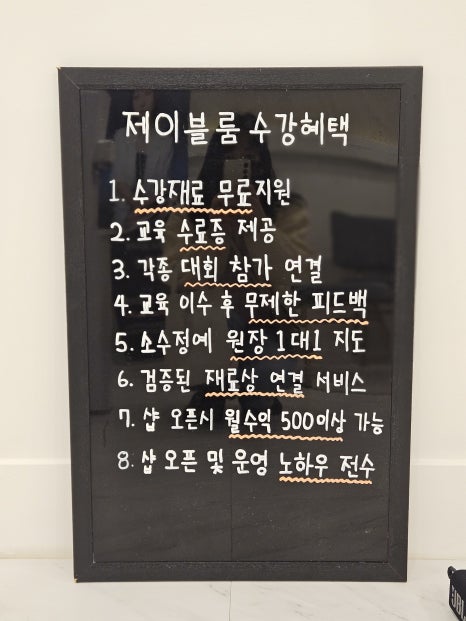 제이블룸 수강혜택
1. 수강재료 무료지원
2. 교육 수료증 제공
3. 각종 대회 참가 연결
4. 교육 이수 후 무제한 피드백
5. 소수정예 원장 1대1 지도
6. 검증된 재료상 연결 서비스
7. 샵 오픈시 월수익 500이상 가능
8. 샵 오픈 및 운영 노하우 전수
JBL